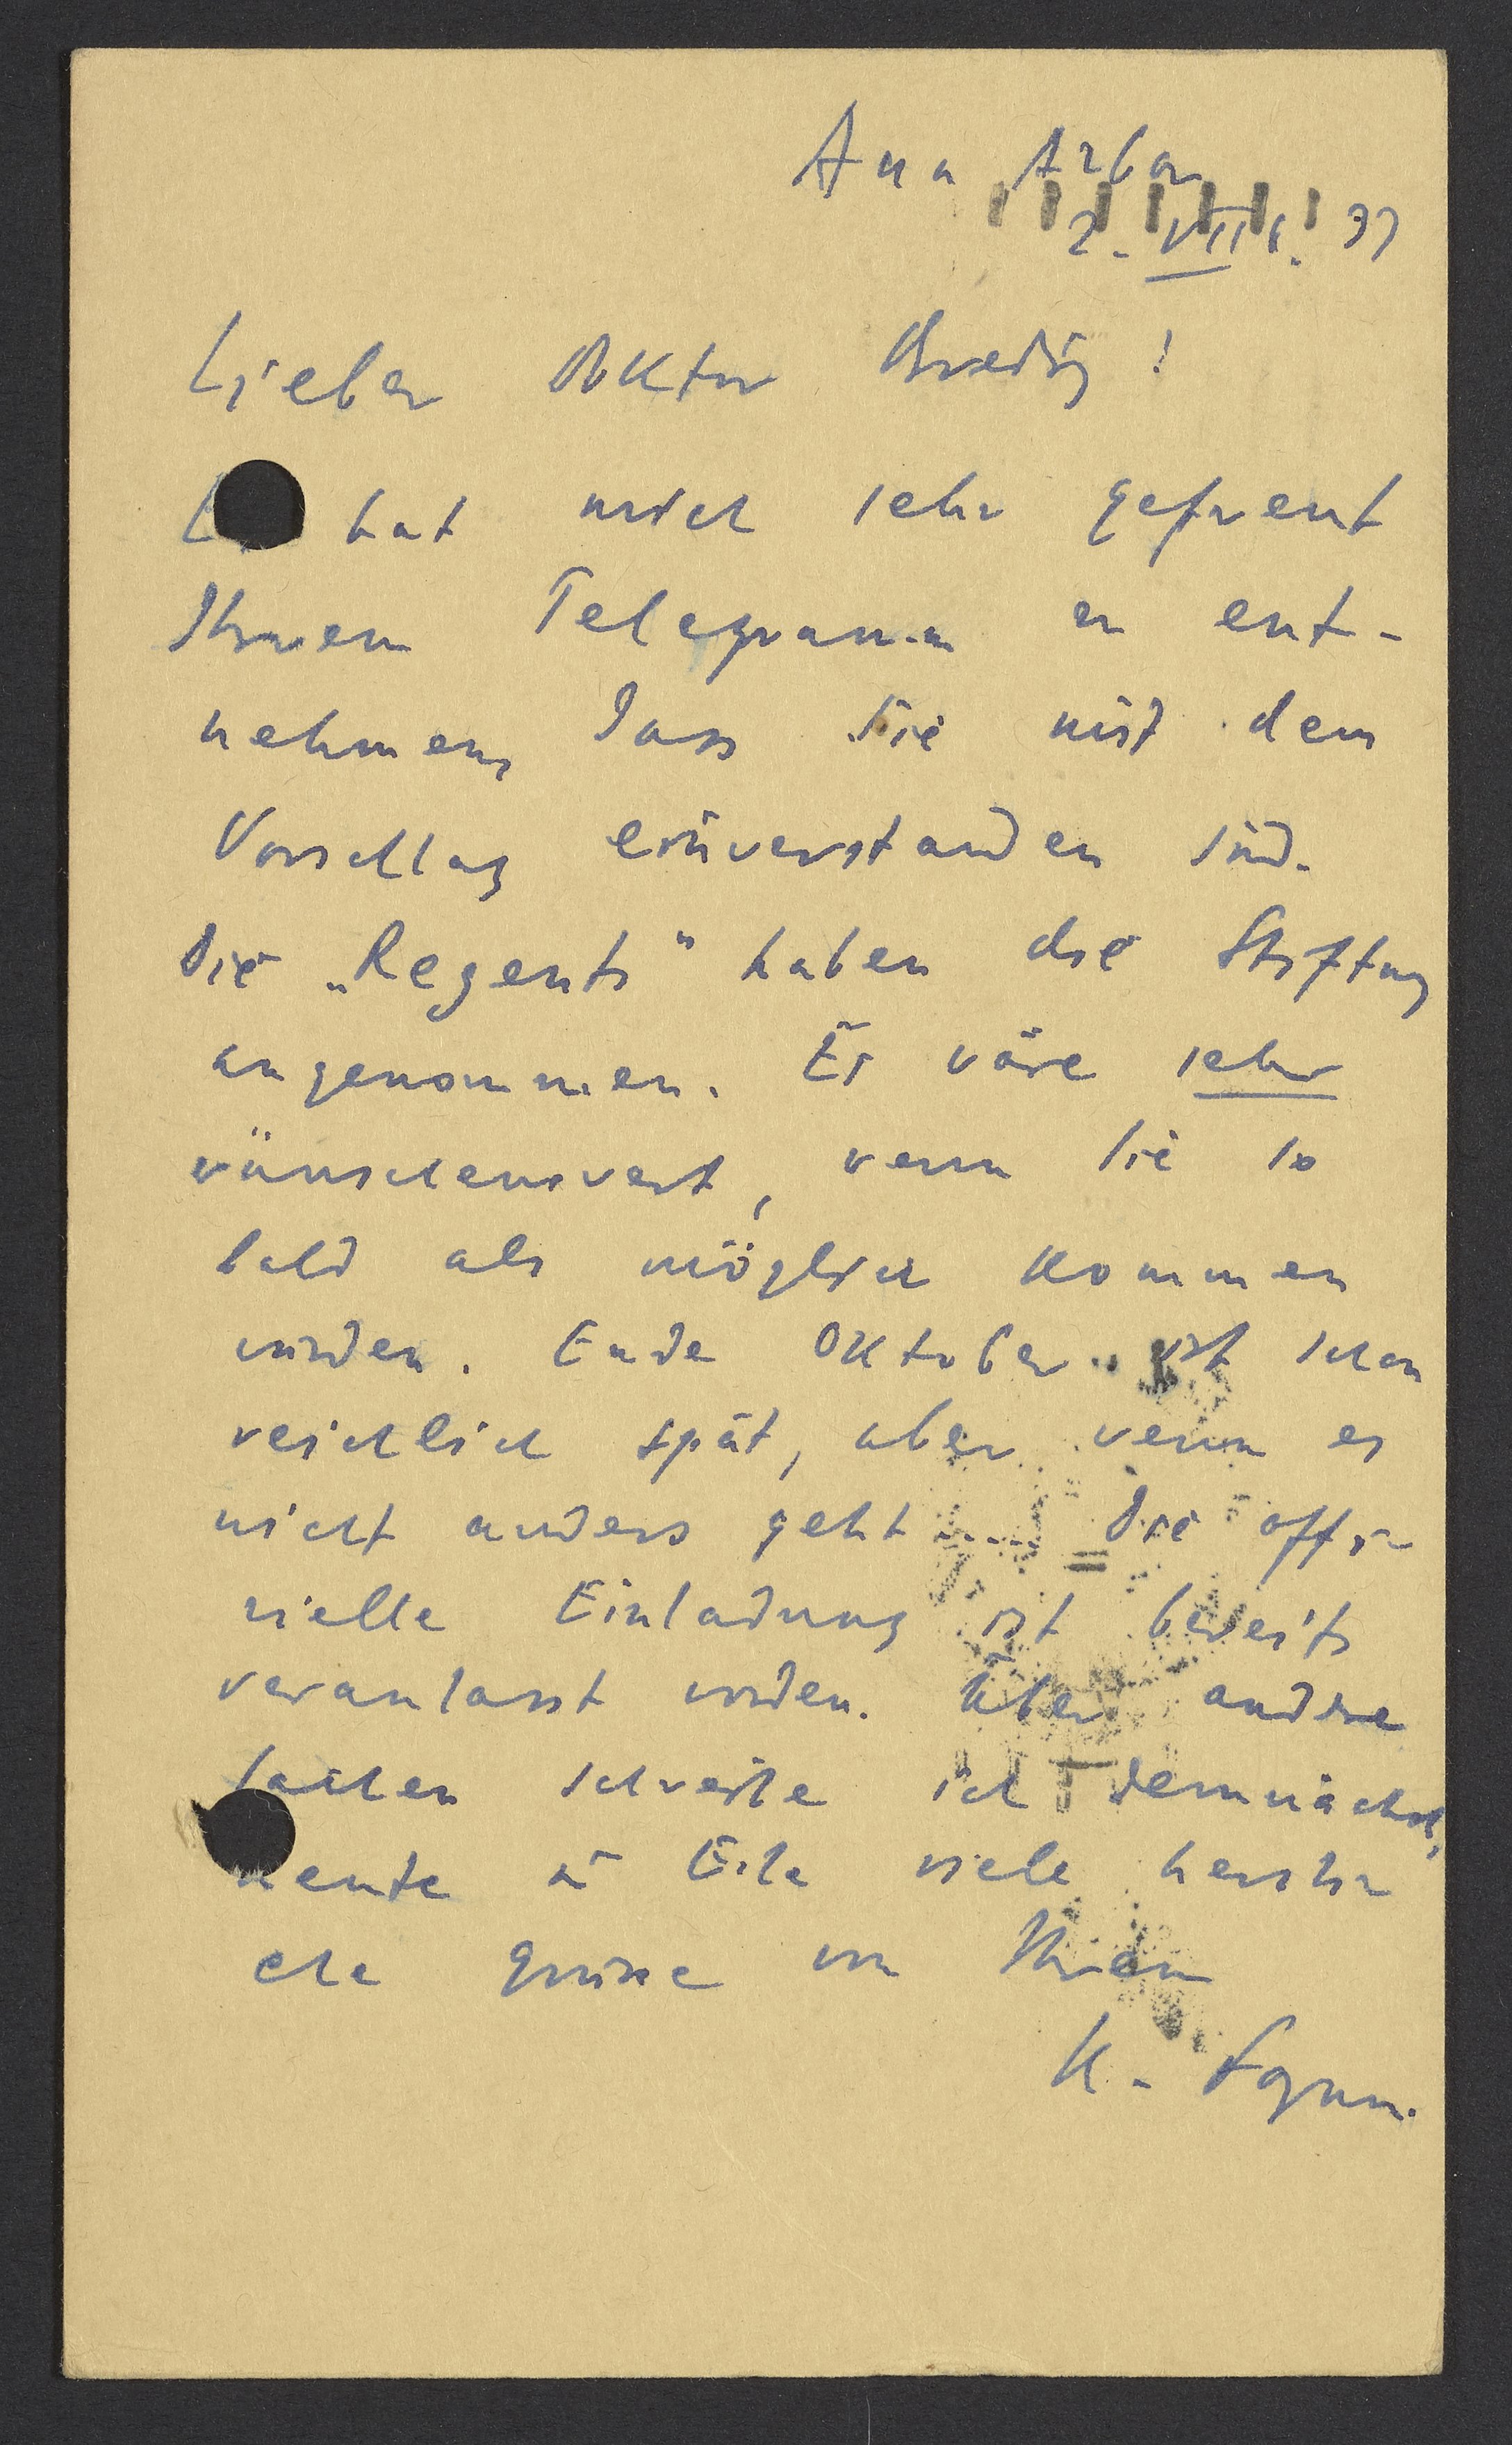 Ann Arbor
2. VIII. 37
Lieber Doktor Bredig!
Es hat mich sehr gefreut
Ihrem Telegramm zu ent-
nehmen, dass Sie mit dem
Vorschlag einverstanden sind.
Die „Regents" haben die Stiftung
angenommen. Es wäre sehr
wünschenswert, wenn Sie so
bald als möglich kommen
würden. Ende Oktober ist schon
reichlich spät, aber wenn es
nicht anders geht .... Die offi-
zielle Einladung ist bereits
veranlasst worden. Über andere
Sachen schreibe ich demnächst,
heute in Eile viele herzli-
che Grüsse von Ihrem
K. Fajans.